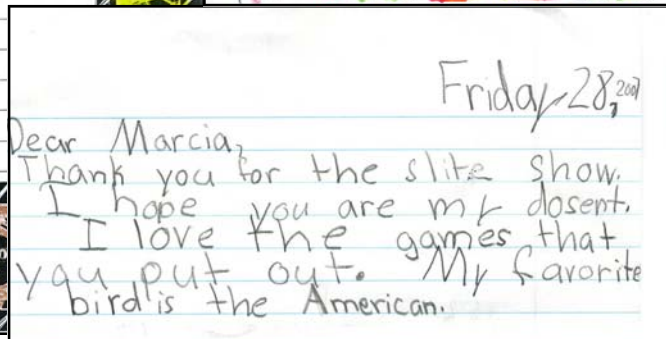 Friday 28, 2007
Dear Marcia,
Thank you for the slite show.
I hope you are my dosent.
I love the games that
you put out. My favorite
bird is the American.